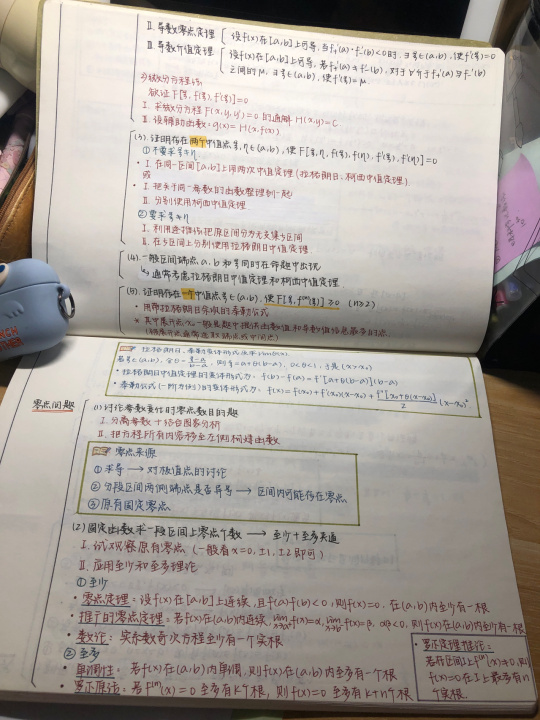 II. 导数零点定理 [设f(x)在[a,b]上可导,当f'₊(a)·f'₋(b)<0时,∃ξ∈(a,b),使f'(ξ)=0
III. 导数介值定理 [设f(x)在[a,b]上可导,若f'₊(a)≠f'₋(b),对于∀介于f'₊(a)与f'₋(b)
之间的μ,∃ξ∈(a,b),使f'(ξ)=μ.
欲证F[ξ,f(ξ),f'(ξ)]=0
I. 求微分方程F(x,y,y')=0的通解H(x,y)=C.
II. 设辅助函数:g(x)=H(x,f(x)).
(3).证明存在两个中值点ξ,η∈(a,b),使F[ξ,η,f(ξ),f(η),f'(ξ),f'(η)]=0
①不要求ξ≠η
I. 在同一区间[a,b]上用两次中值定理(拉格朗日、柯西中值定理).
或
I. 把关于同一参数的函数整理到一起
II. 分别使用柯西中值定理
②要求ξ≠η
I. 利用逆推法把原区间分为无交集子区间
II. 在子区间上分别使用拉格朗日中值定理
(4).一般区间端点a,b和ξ同时在命题中出现
↳通常考虑拉格朗日中值定理和柯西中值定理.
(5).证明存在一个中值点ξ∈(a,b),使F[ξ,f⁽ⁿ⁾(ξ)]≥0 (n≥2)
·用带拉格朗日余项的泰勒公式
*其中展开点x₀一般是题中提供函数值和导数值信息最多的点
拉格朗日、泰勒具体形式
若ξ∈(a,b),令θ=(ξ-a)/(b-a),则ξ=a+θ(b-a),0<θ<1,于是
·拉格朗日中值定理的具体形式为:f(b)-f(a)=f'[a+θ(b-a)](b-a)
·泰勒公式(一阶为例)的具体形式为:f(x)=f(x₀)+f'(x₀)(x-x₀)+f''[x₀+θ(x-x₀)]/2 (x-x₀)²
零点问题
(1)讨论参数变化时零点数目的题
I. 分离参数+结合图象分析
II. 把方程所有内容移至左侧构造函数
零点来源
①求导→对极值点的讨论
②分段区间两侧端点是否异号→区间内可能存在零点
③原有固定零点
(2)固定函数求一段区间上零点个数→至少+至多夹逼
I. 试观察原有零点(一般看x=0,±1,±2即可)
II. 应用至少和至多理论
①至少
·零点定理:设f(x)在[a,b]上连续,且f(a)f(b)<0,则f(x)=0,在(a,b)内至少有一根
·推广的零点定理:若f(x)在(a,b)内连续,lim x→a⁺ f(x)=α,lim x→b⁻ f(x)=β,αβ<0,则f(x)在(a,b)内至少有一根
·数论:实系数奇次方程至少有一个实根
②至多
·单调性:若f(x)在(a,b)内单调,则f(x)在(a,b)内至多有一个根
·罗尔原话:若f⁽ⁿ⁾(x)=0至多有k个根,则f(x)=0至多有k+n个根
·罗尔定理推论:
若在区间I上f⁽ⁿ⁾(x)≠0,则
f(x)=0在I上最多有n
个实根.